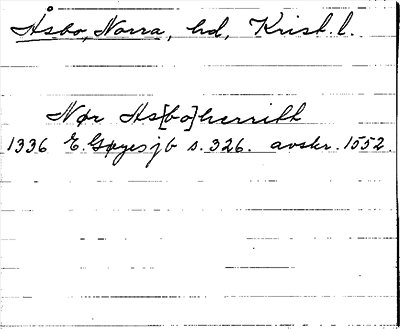 Åsbo, Norra, hd, Krist. l.
Nør As[bo]herritt
1336 E. Gøyes jb s. 326. avskr. 1552.